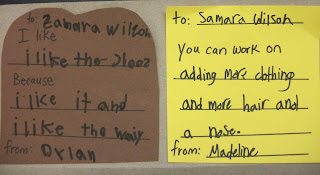 to: Zamara Wilson
I like
i like the
Because
i like it and
i like the wair
from: Dylan
to: Samara Wilson
You can work on
adding more clothing
and more hair and
a nose.
from: Madeline